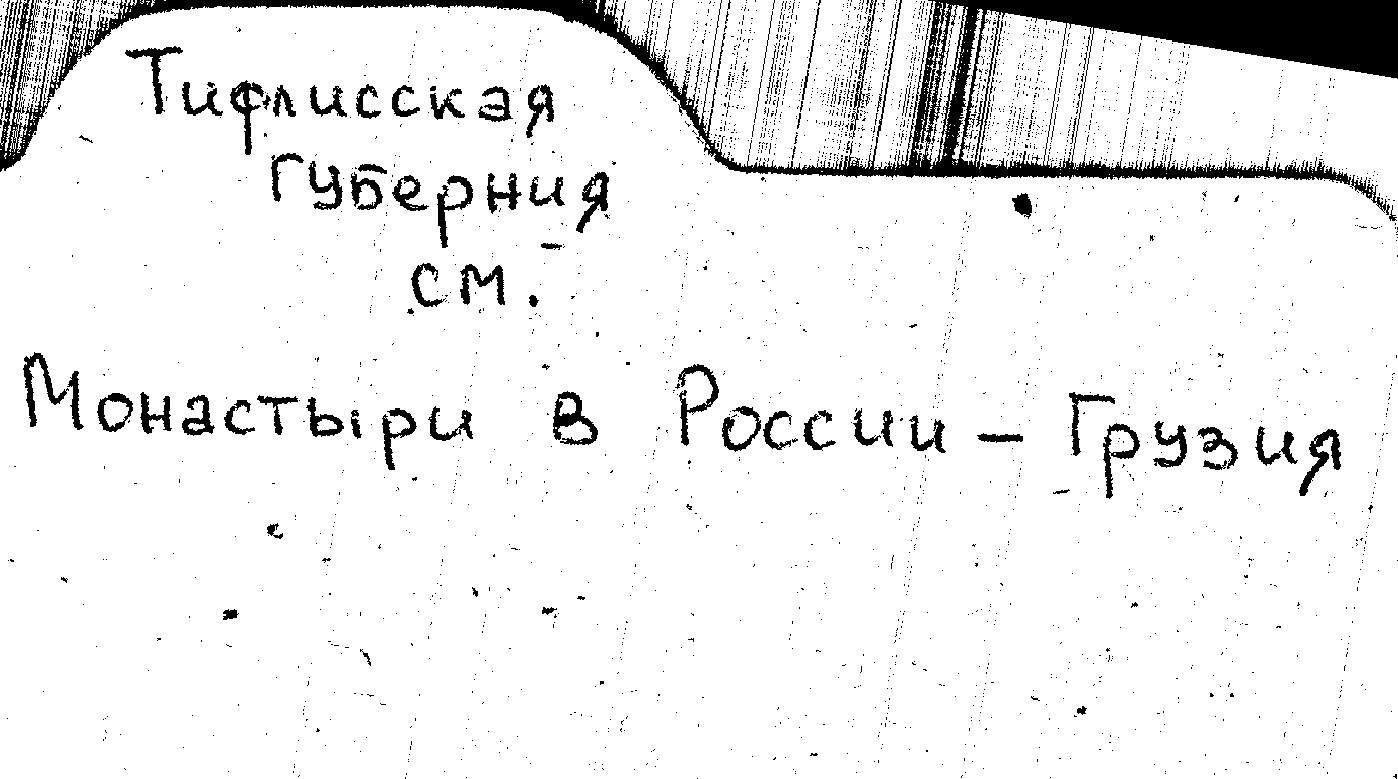 Тифлисская
губерния
см.
Монастыри в России – Грузия